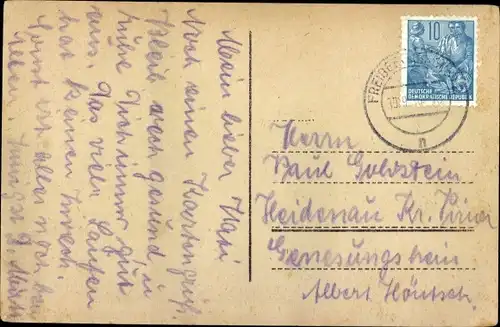 Mein lieber Papi
Noch einen Kartengruß
Bleib recht gesund u.
ruhe Dich immer gut
aus. Das viele Laufen
hat keinen Zweck.
Sonst ist alles noch beim
Alten.
10
DEUTSCHE
DEMOKRATISCHE REPUBLIK
FREIBERG
n
Herrn
Paul Goldstein
Heidenau Kr. Pirna
Genesungsheim
Albert Höntsch